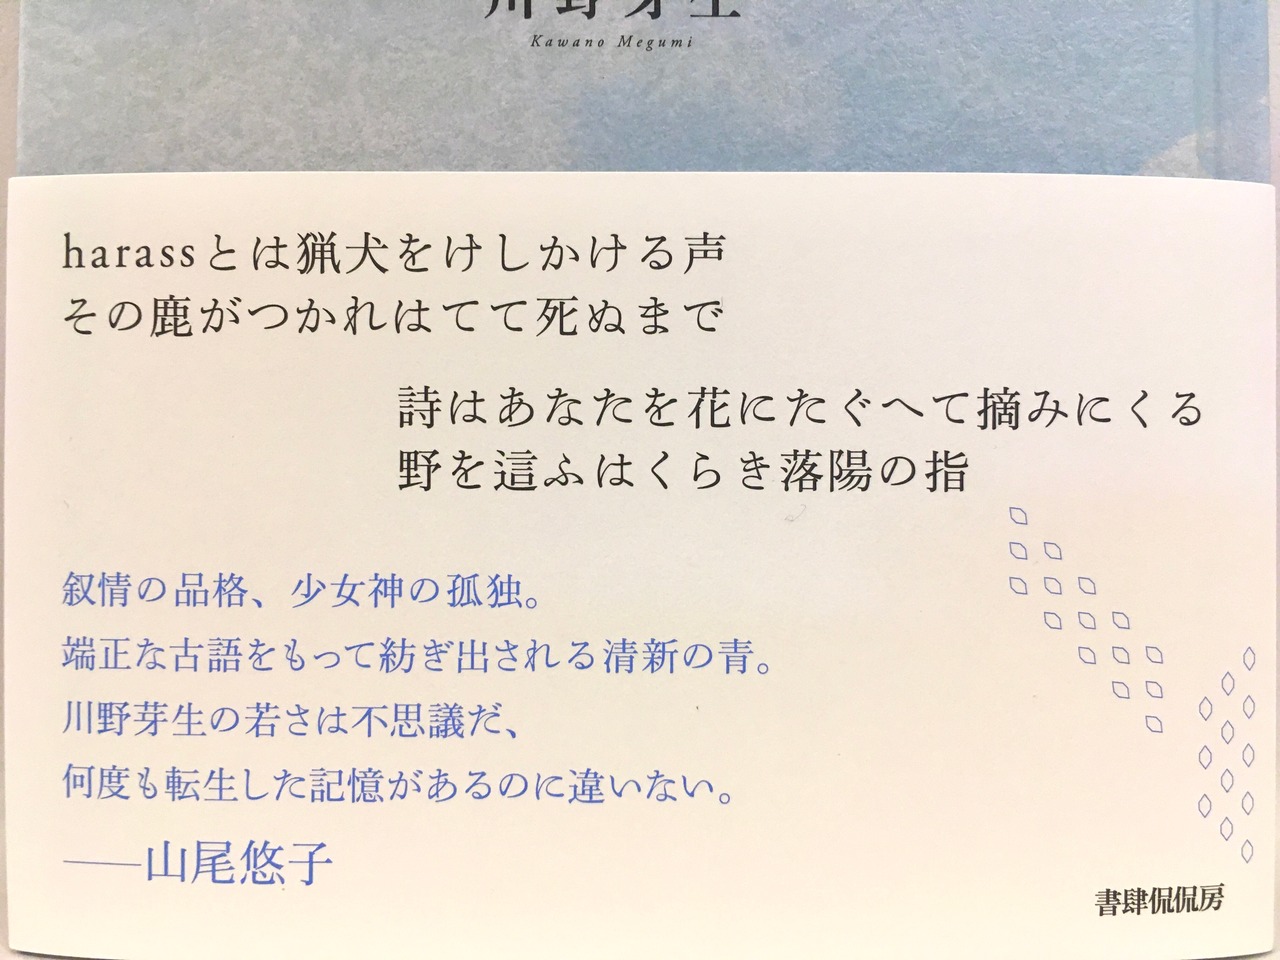 川野芽生
Kawano Megumi
harassとは猟犬をけしかける声
その鹿がつかれはてて死ぬまで
詩はあなたを花にたぐへて摘みにくる
野を這ふはくらき落陽の指
叙情の品格、少女神の孤独。
端正な古語をもって紡ぎ出される清新の青。
川野芽生の若さは不思議だ、
何度も転生した記憶があるのに違いない。
──山尾悠子
書肆侃侃房